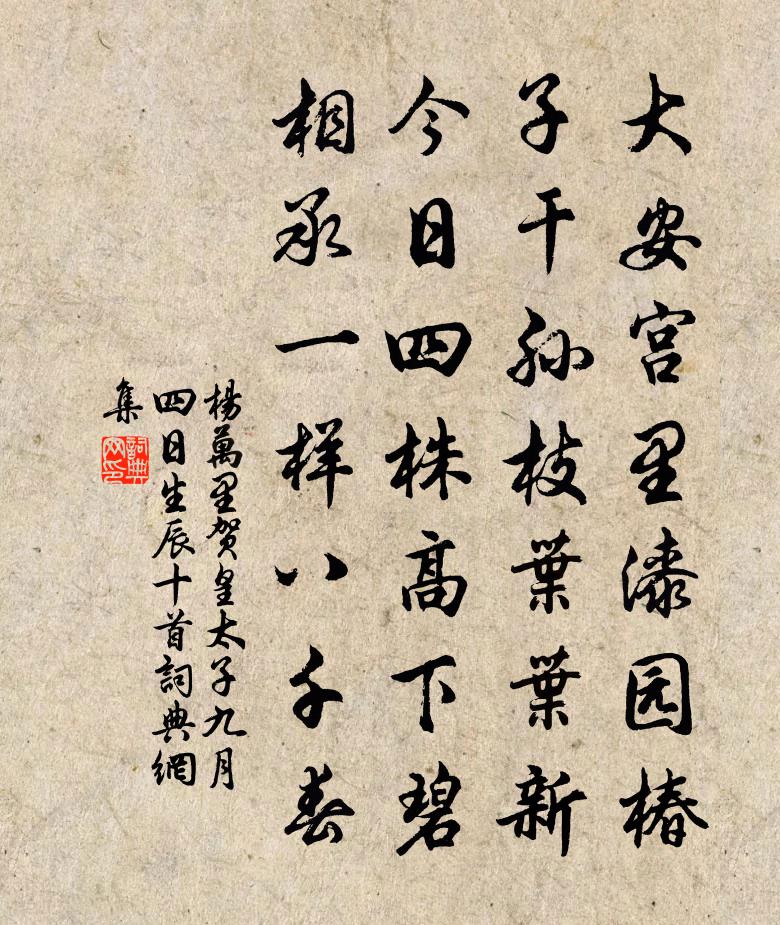 大安宫里漆园椿
子干孙枝葉葉新
今日四株高下碧
相承一样八千春
楊萬里贺皇太子九月
四日生辰十首詞典網
集
詞典网印